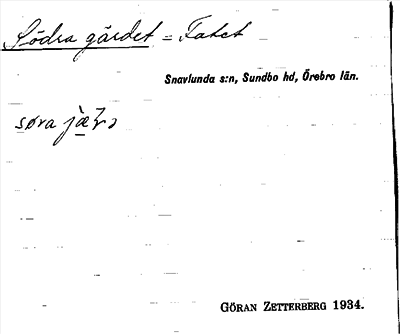 Södra gärdet = Fatet
Snavlunda s:n, Sundbo hd, Örebro län.
søra
GÖRAN ZETTERBERG 1934.